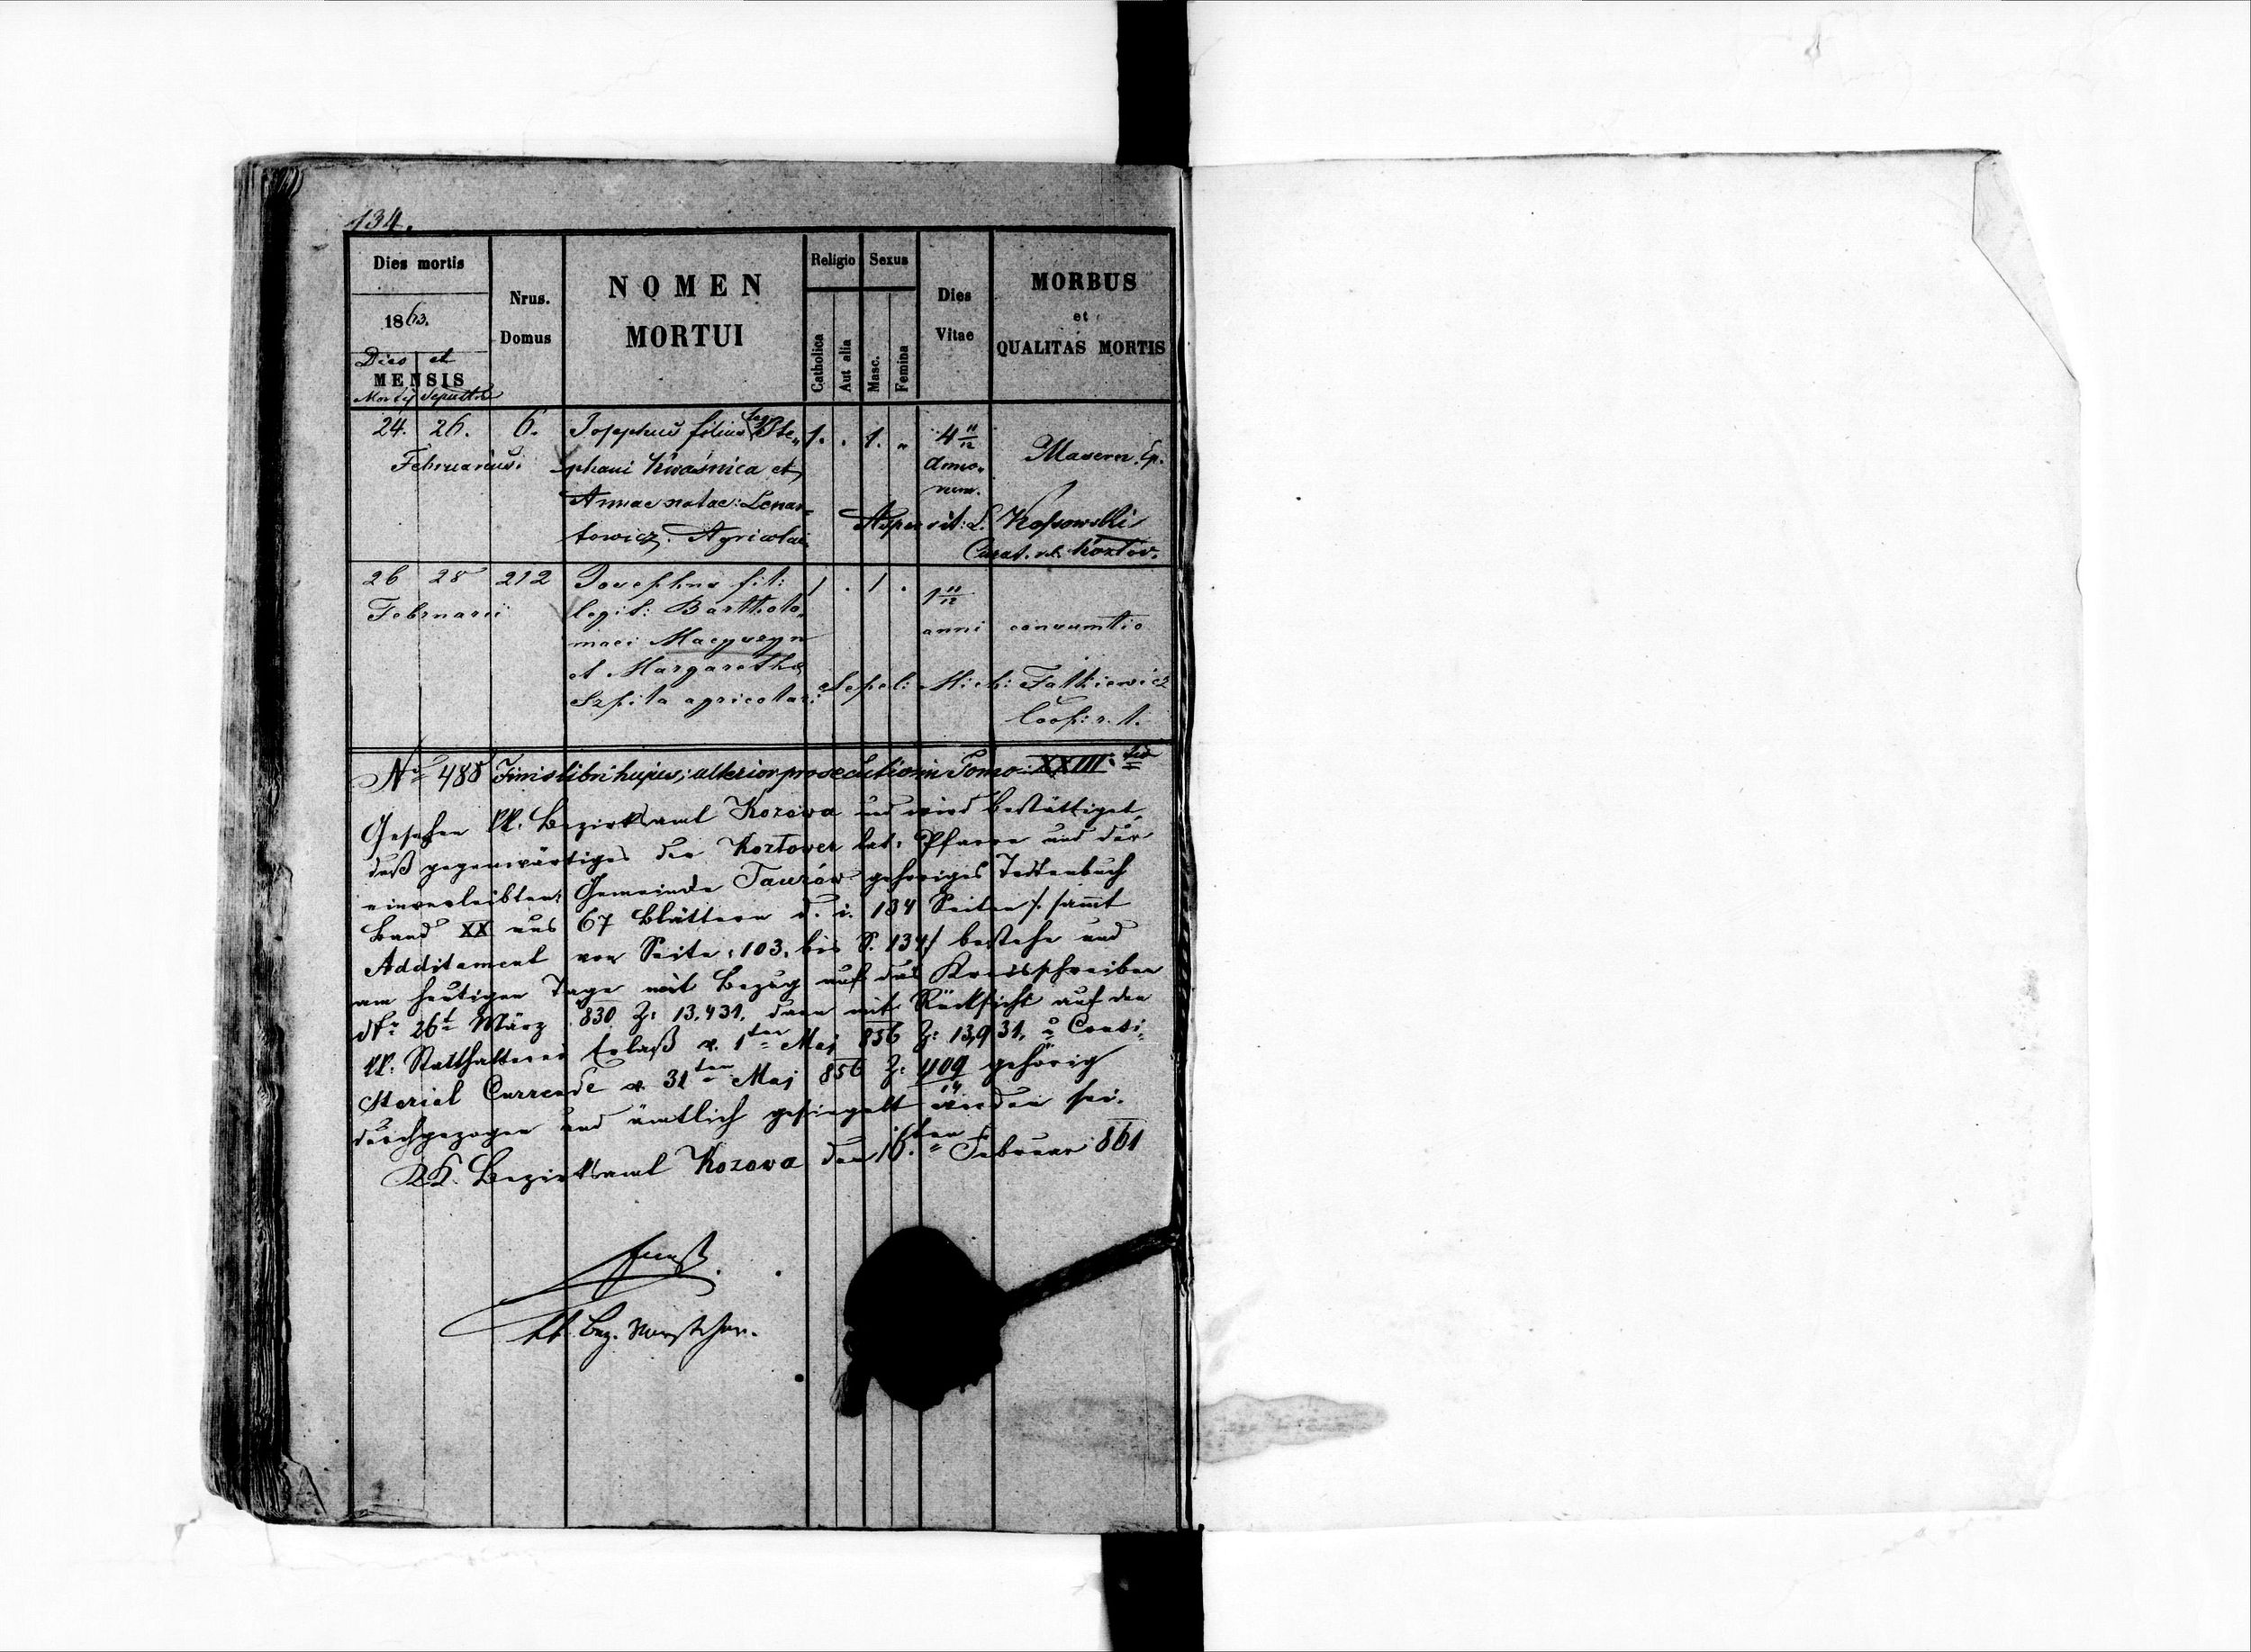 134.
Dies mortis
1863.
Dies et
MENSIS
Mortis Sepulturae
Nrus.
Domus
NOMEN
MORTUI
Religio
Catholica
Aut alia
Sexus
Masc.
Femina
Dies
Vitae
MORBUS
et
QUALITAS MORTIS
24. 26. 6. Josephus filius leg. Ste„ 1. . 1. „ 4 11/12
Februarius. phani Kwaśnica et Anno„ Masern. Ep.
Annae natae: Lenar= rum.
towicz. Agricolae. Aspersit: L. Kossowski
Curat. r.l. Kozłov.
26 28 212 Josephus fil: 1 . 1 . 1 11/12
Februarii legit: Bartholo„
maei Macyuzyn anni consumtio
et Margaretha
Szpila agricolar: Sepel: Mich: Falkiewicz
Coop: r. l.
No 488 Finis libri hujus; ulterior prosecutio in Tomo XXIII:
Gesehen kk. Bezirksamt Kozowa und wird bestättiget,
daß gegenwärtiges der Kozłover lat. Pfarre und der
einverleibten Gemeinde Taurów gehöriges Todtenbuch
Band XX aus 67 Blättern d. i. 134 Seiten /: sammt
Additament von Seite 103. bis S. 134 :/ bestehe und
am heutigen Tage mit Bezug auf das Kreisschreiben
dto 26t März 830 Z: 13.431. dann mit Rücksicht auf den
kk. Statthalterei Erlaß v. 1ten Maj 856 Z: 13,931. Consi-
storial Currende v. 31ten Maj 856 Z: 1109/14 gehörig
durchgezogen und ämtlich gesiegelt worden sei.
KK. Bezirksamt Kozowa den 16ten Februar 861
kk Bez. Vorsteher.